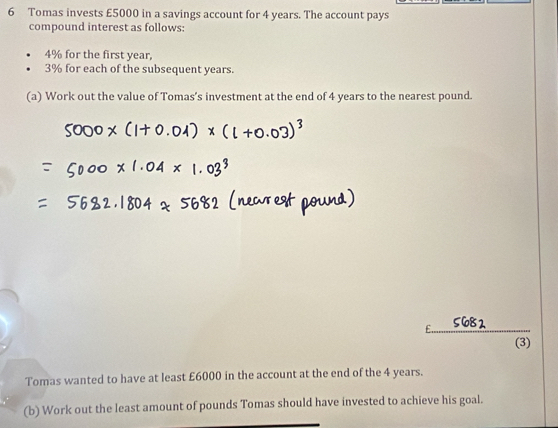 6 Tomas invests £5000 in a savings account for 4 years. The account pays
compound interest as follows:
• 4% for the first year,
• 3% for each of the subsequent years.
(a) Work out the value of Tomas's investment at the end of 4 years to the nearest pound.
5000 × (1+0.04) × (1+0.03)³
= 5000 × 1.04 × 1.03³
= 5682.1804 ≈ 5682 (nearest pound)
£ 5682
(3)
Tomas wanted to have at least £6000 in the account at the end of the 4 years.
(b) Work out the least amount of pounds Tomas should have invested to achieve his goal.